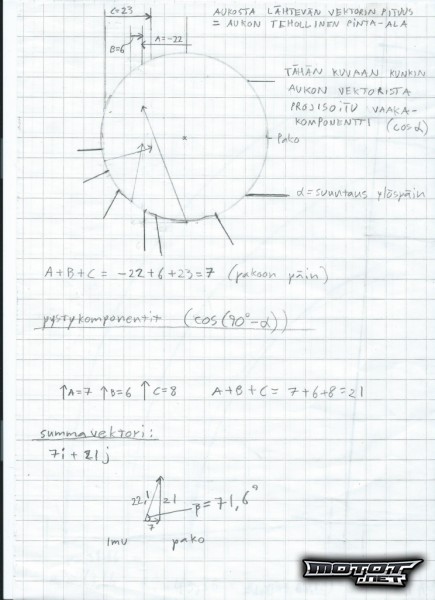 C=23
B=6
A=-22
AUKOSTA LÄHTEVÄN VEKTORIN PITUUS
= AUKON TEHOLLINEN PINTA-ALA
TÄHÄN KUVAAN KUNKIN
AUKON VEKTORISTA
PROJISOITU VAAKA-
KOMPONENTTI (cos α)
Pako
α = suuntaus ylöspäin
A+B+C = -22+6+23=7 (pakoon päin)
pystykomponentit (cos(90°-α))
↑A=7 ↑B=6 ↑C=8 A+B+C= 7+6+8=21
summavektori:
7i + 21j
22,1 21
7
β=71,6°
imu pako
MOTOT
.NET